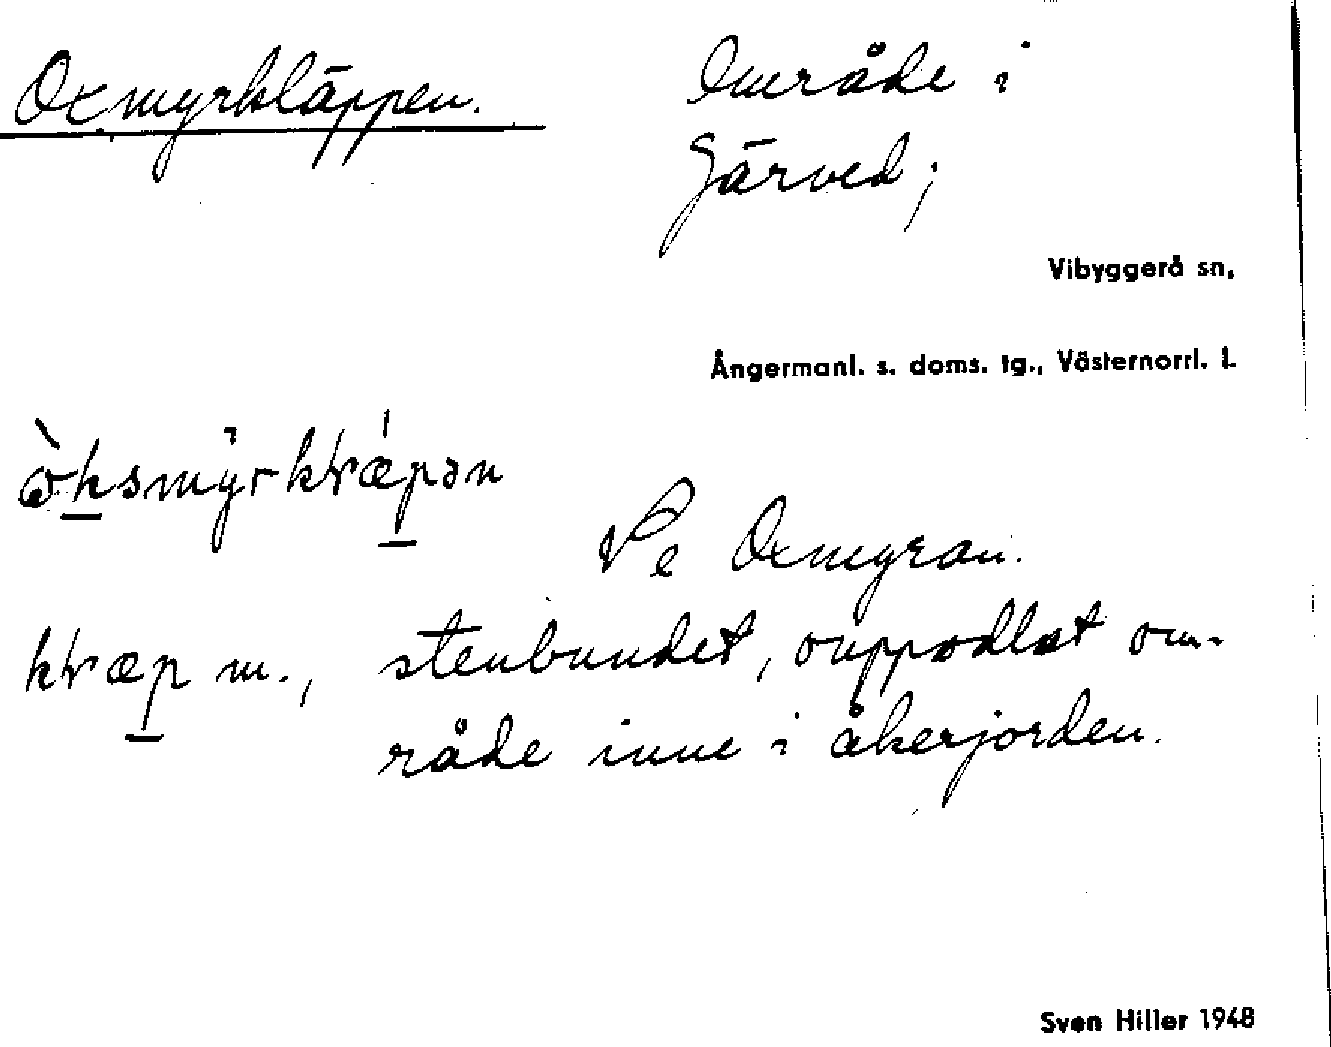 Oxmyrkläppen.
Område i
Gärved;
Vibyggerå sn,
Ångermanl. s. doms. tg., Västernorrl. L
Se Oxmyran.
m., stenbundet, ouppodlat om-
råde inne i åkerjorden.
Sven Hiller 1948